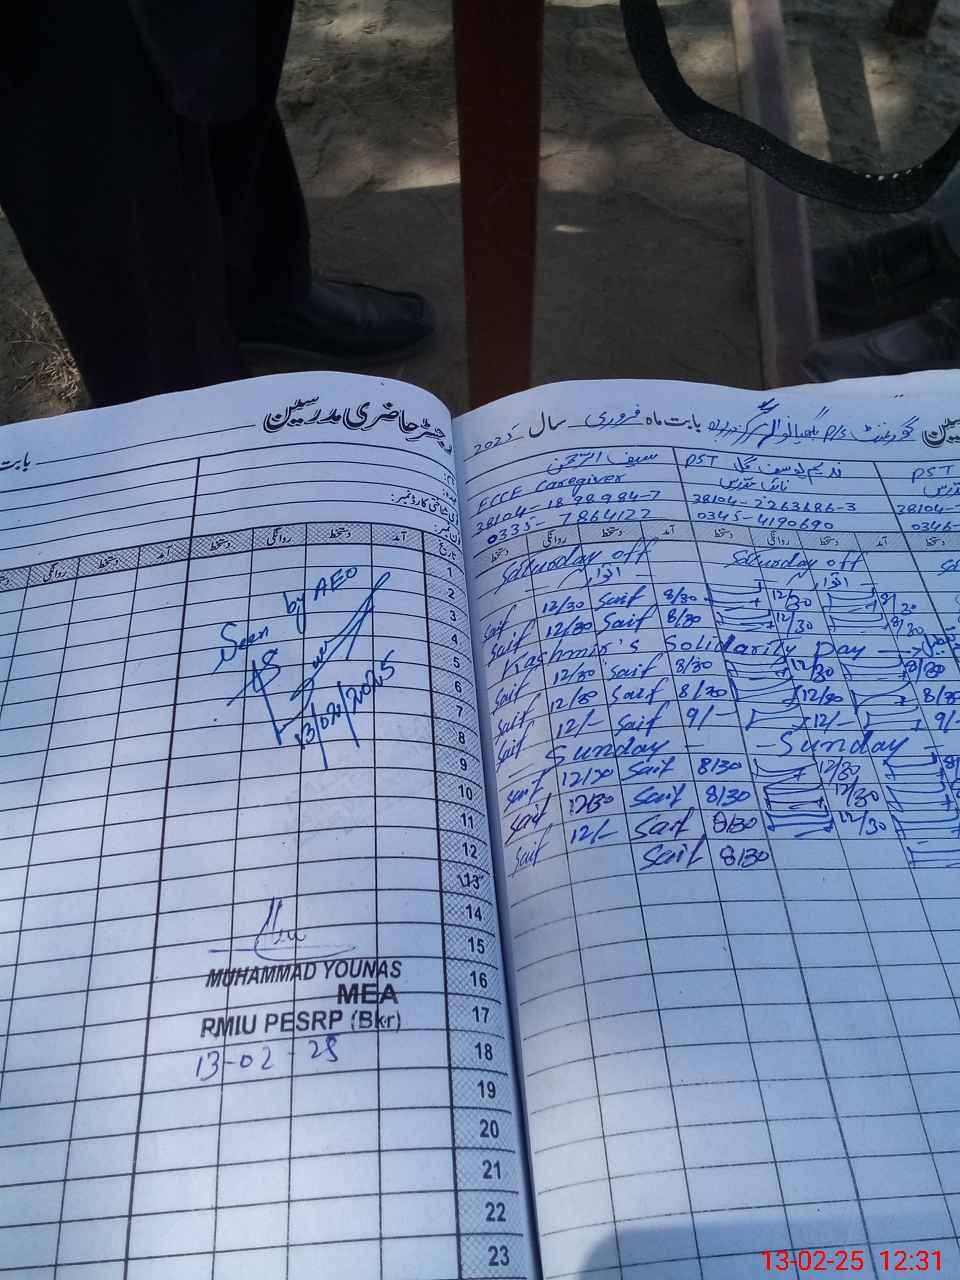 رجسٹر حاضری مدرسین
تاریخ
آمد
دستخط
روانگی
دستخط
آمد
دستخط
روانگی
1
2
3
4
5
6
7
8
9
10
11
12
13
14
15
16
17
18
19
20
21
22
23
Seen by AEO
13/02/2025
MUHAMMAD YOUNAS
MEA
RMIU PESRP (Bkr)
13-02-25
گورنمنٹ P/S
بابت ماہ فروری سال 2025
PST
38104-
0346-
PST
38104-2263686-3
0345-4190690
سیف الرحمن
ECCE Caregiver
38104-1898984-7
0335-7864122
آمد دستخط روانگی دستخط آمد دستخط روانگی دستخط
Saturday off Saturday off
اتوار اتوار
8/30 12/30 8/30 Saif 12/30 Saif
8/30 12/30 8/30 Saif 12/30 Saif
Kashmir's Solidarity Day
8/30 12/30 8/30 Saif 12/30 Saif
8/30 12/30 8/30 Saif 12/30 Saif
9/- 12/- 9/- Saif 12/- Saif
- Sunday - - Sunday -
12/30 8/30 Saif 12/30 Saif
12/30 8/30 Saif 12/30 Saif
12/30 8/30 Saif 12/- Saif
8/30 Saif
13-02-25 12:31